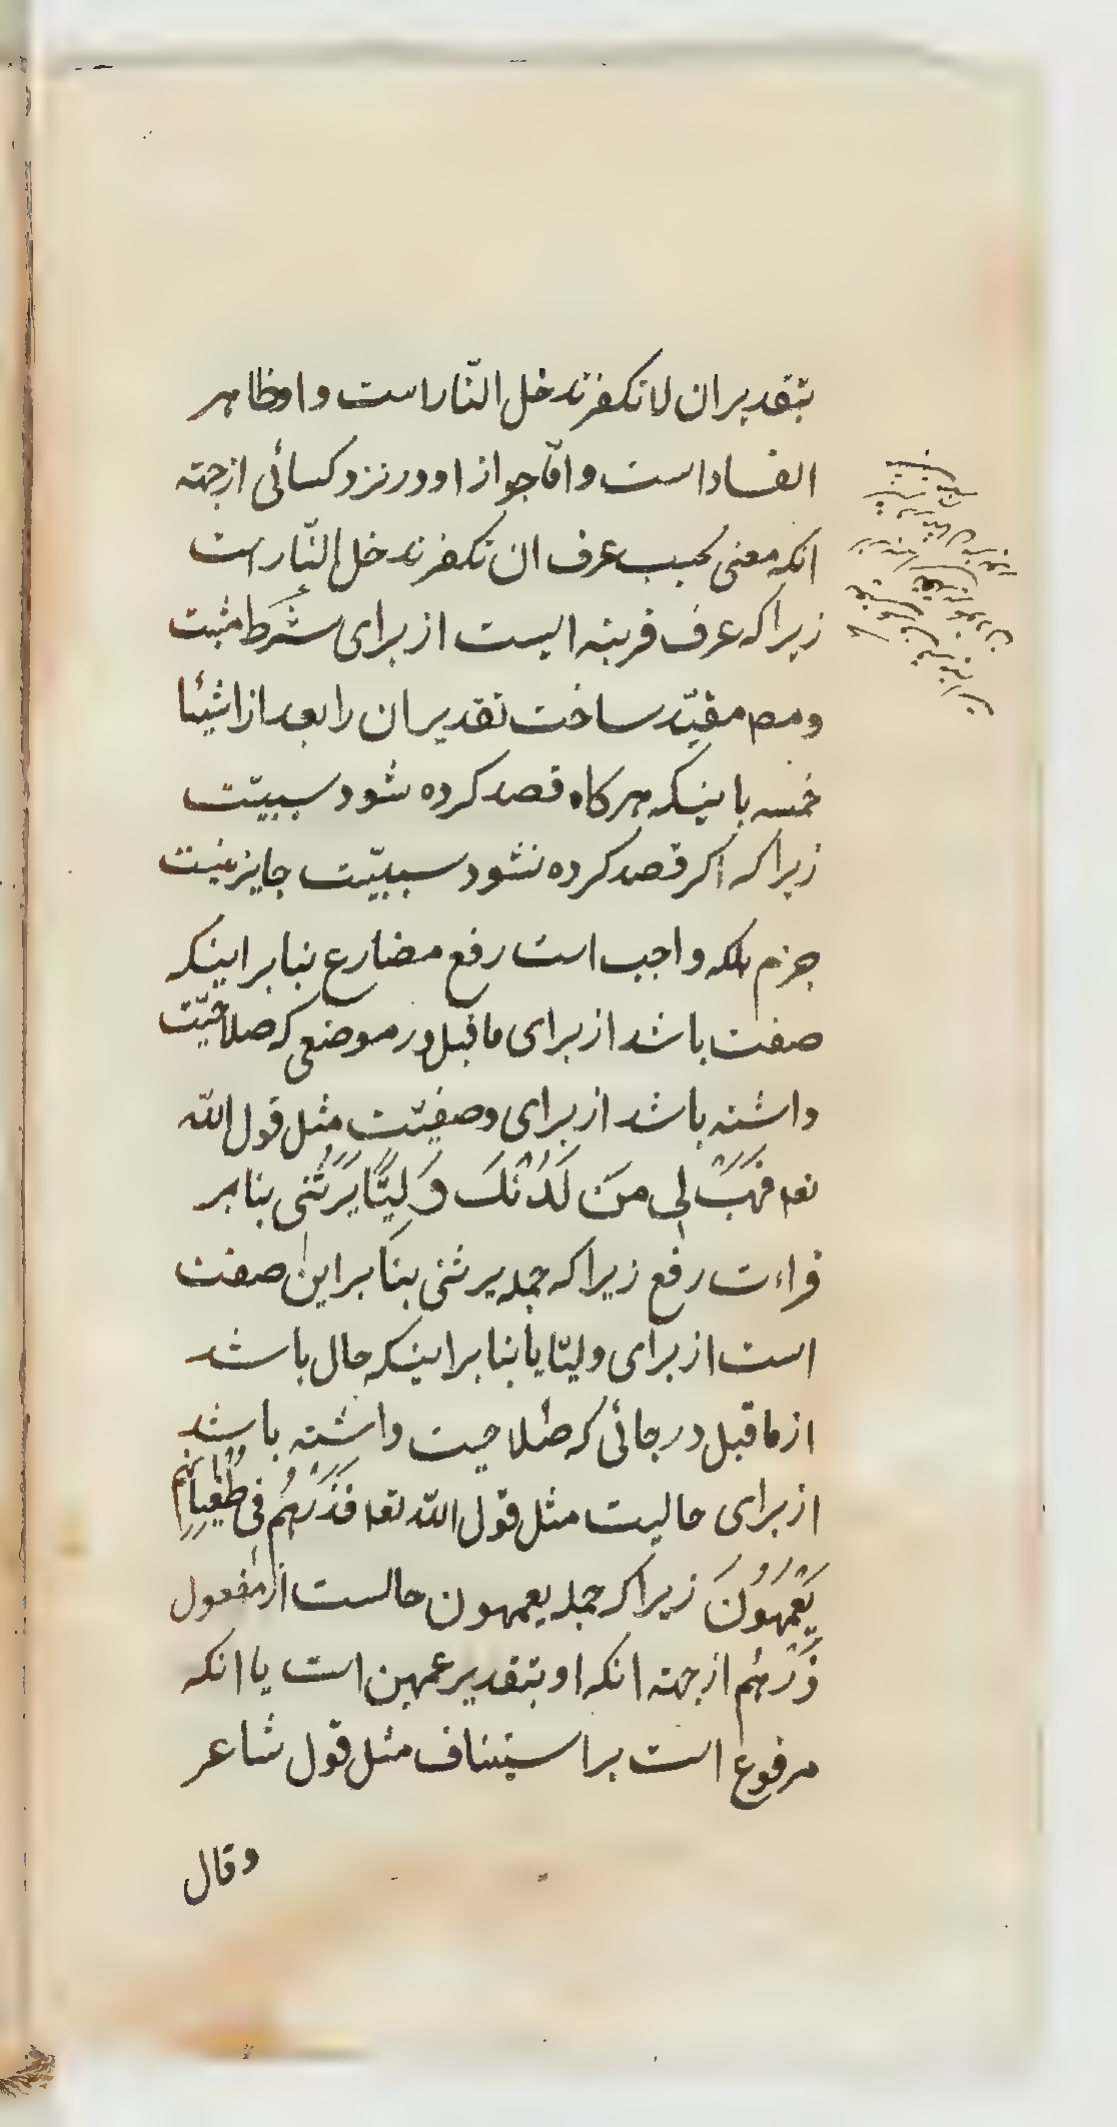 بتقدیر ان لا تکفر تدخل النّار است و او ظاهر
الفساد است و امّا جواز او در نزد کسائی از جهته
انکه معنی بحسب عرف ان تکفر تدخل النّار است
زیرا که عرف قرینه ایست از برای شرط مثبت
و مص مقیّد ساخت تقدیر ان را بعد از اشیئا
خمسه باینکه هرکاه قصد کرده شود سببیّت
زیرا که اکر قصد کرده نشود سببیّت جایز نیست
جزم بلکه واجب است رفع مضارع بنا بر اینکه
صفت باشد از برای ماقبل در موضعی که صلاحیّت
داشته باشد از برای وصفیّت مثل قول اللّه
تعا فَهَبْ لِی مِنْ لَدُنْکَ وَلِیًّا یَرِثُنِی بنا بر
قراءت رفع زیرا که جمله یرثنی بنا بر این صفت
است از برای ولیّا یا بنا بر اینکه حال باشد
از ماقبل در جائی که صلاحیت داشته باشد
از برای حالیت مثل قول اللّه تعا فَذَرْهُمْ فِی طُغْیانِهِم
یَعْمَهُونَ زیرا که جمله یعمهون حالست از مفعول
ذَرْهُم از جهته انکه او بتقدیر عمهین است یا انکه
مرفوع است بر استیناف مثل قول شاعر
وقال